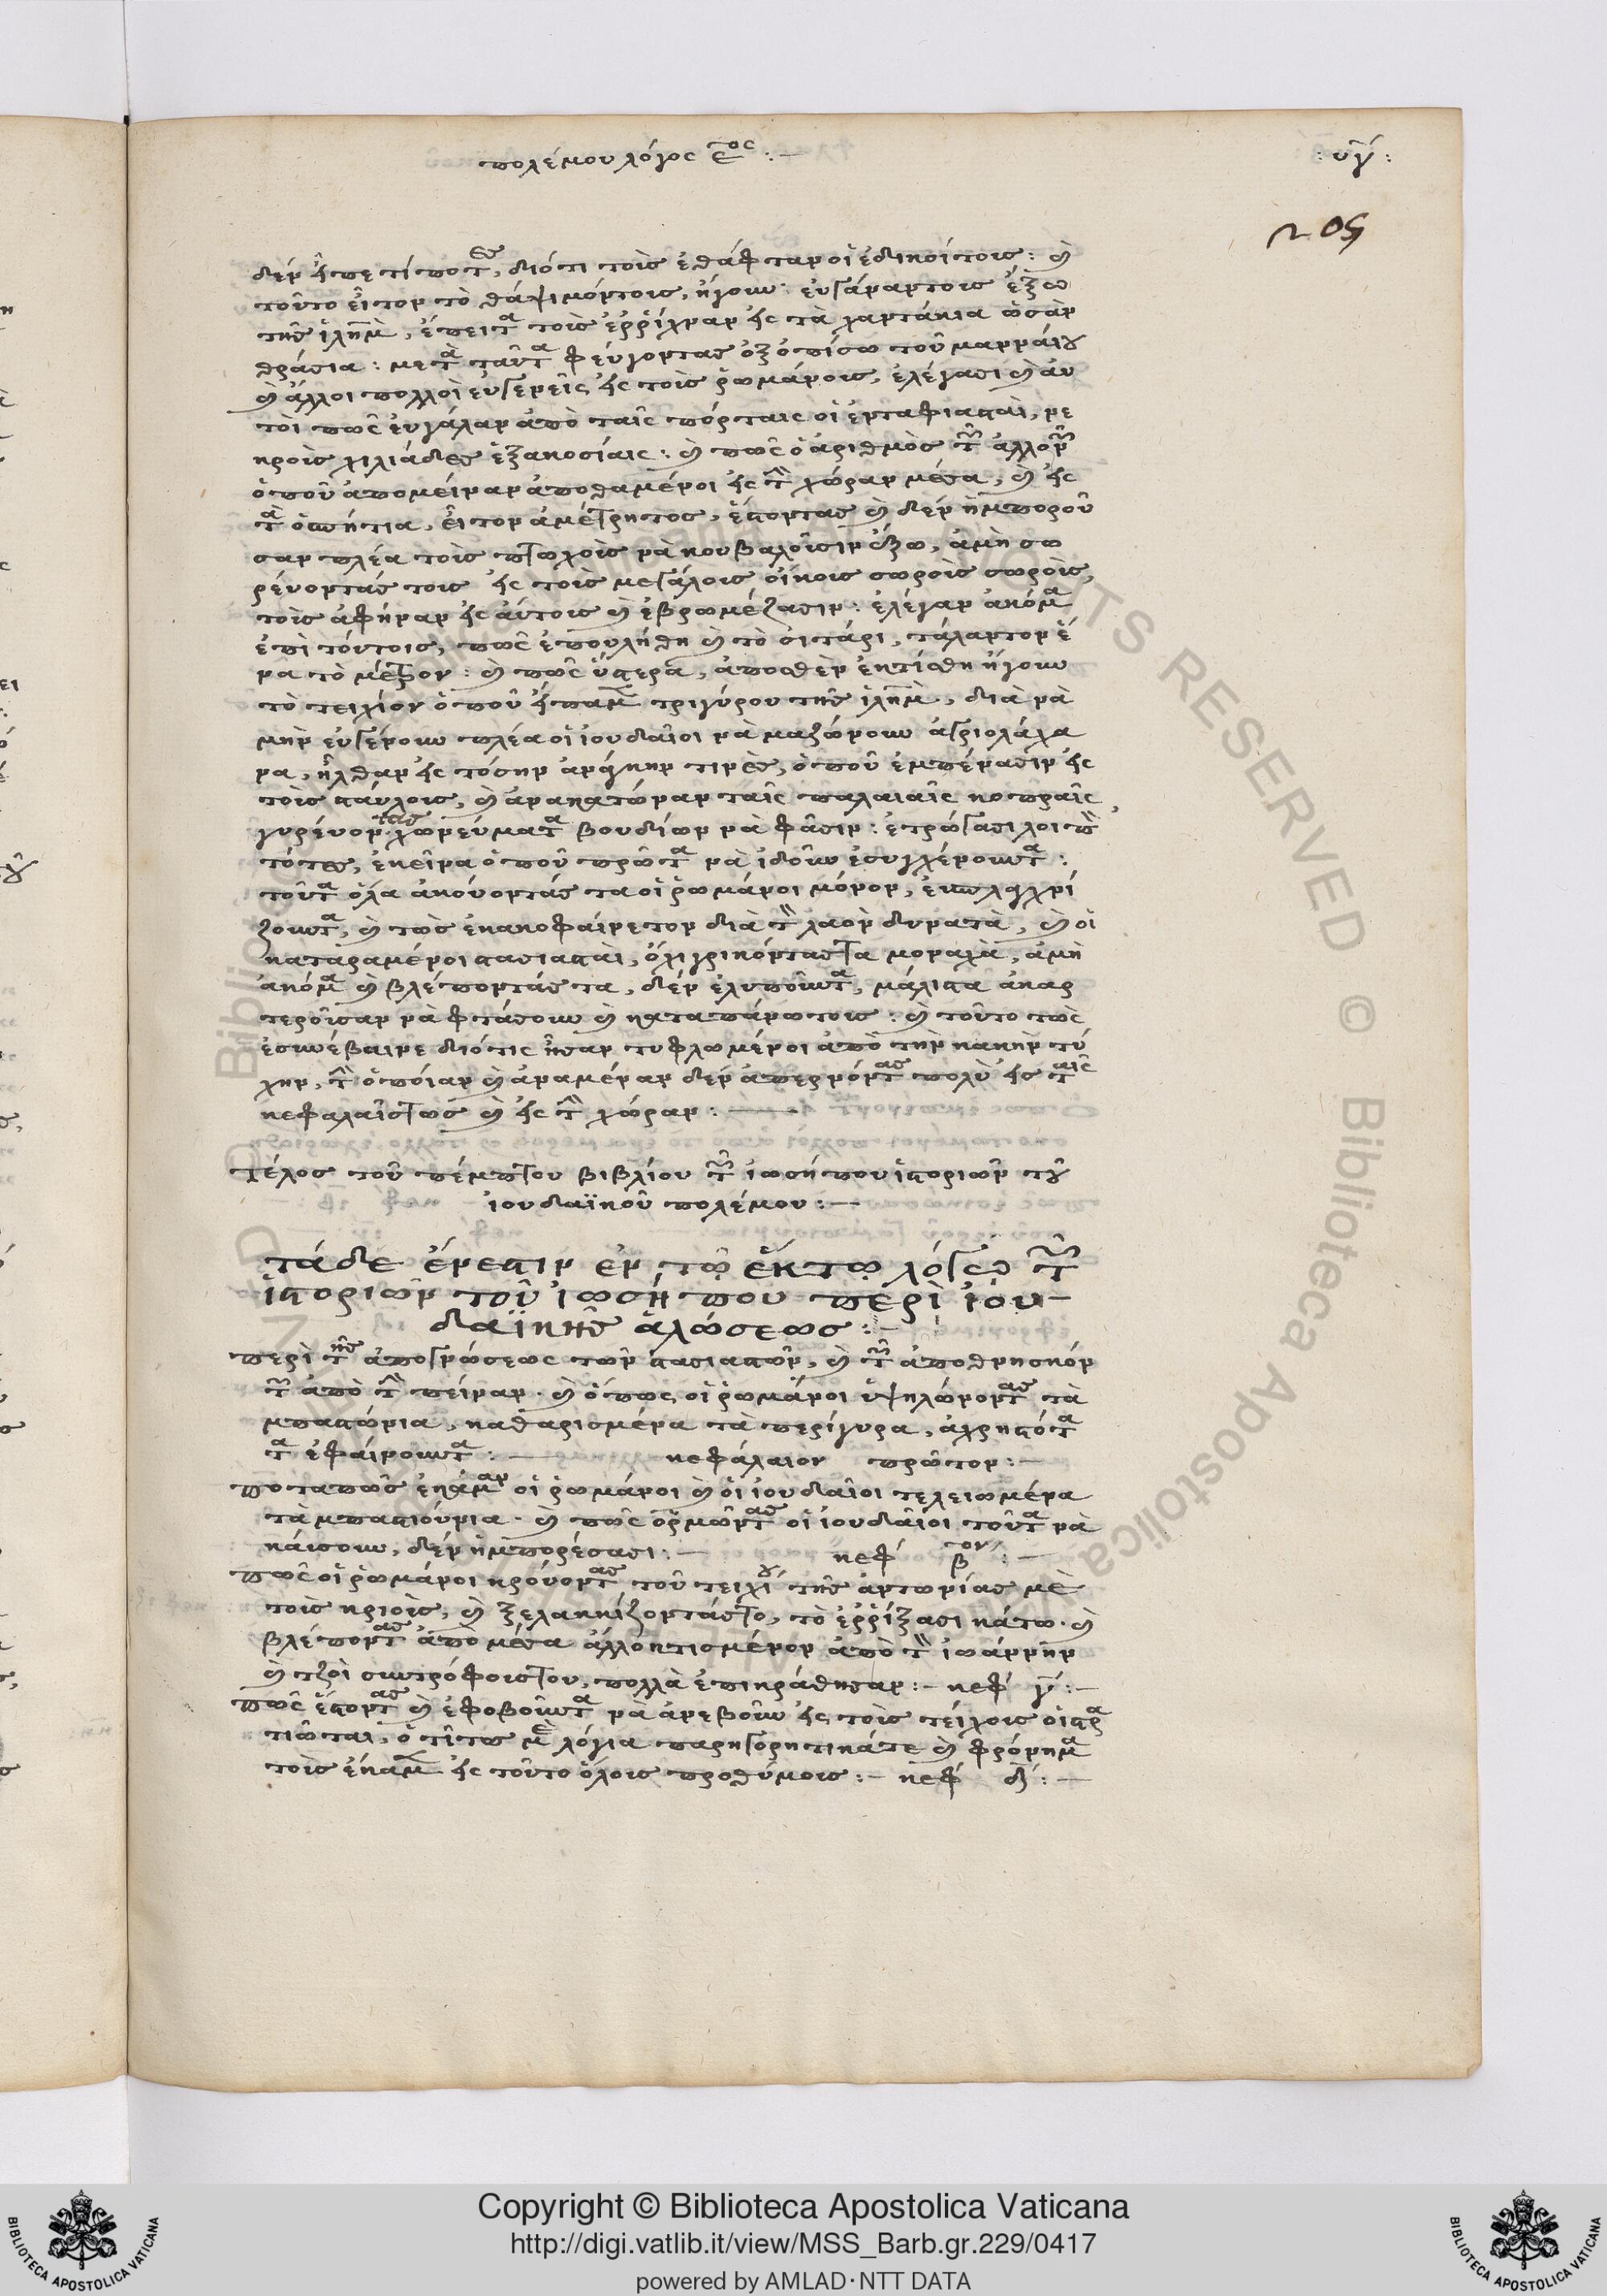 πολέμου λόγος ε̅ος :—
: υγ :
205
δὲν εἶπε τίποτεσ, διότι τοὺς ἐθάφταν οἱ ἐδικοίτους : καὶ
τοῦτο εἶτον τὸ θάψιμόντους, ἤγουν εὐγάναντους ἔξω
τῆς ἱλημ̅, ἔπειτα τοὺς ἐρρίχναν εἰς τὰ χαντάκια ὡσὰν
θράσια : μετὰ ταῦτα φεύγοντας ὀξοπίσω τοῦ μαννάιου
καὶ ἄλλοι πολλοὶ εὐγενεῖς εἰς τοὺς ῥωμάνους, ἐλέγασι καὶ αὐ
τοὶ πῶς εὐγάλαν ἀπὸ ταῖς πόρταις οἱ ἐνταφιασταὶ, νε
κροὺς χιλιάδες ἑξακοσίαις : καὶ πῶς ὁ ἀριθμὸς τῶν ἀλλονῶν
ὁποῦ ἀπομεῖναν ἀποθαμένοι εἰς τὴν χώραν μέσα, καὶ εἰς
τὰ ὀσπήτια, εἶτον ἀμέτρητος, ἔστοντας καὶ δὲν ἠμποροῦ
σαν πλέα τοὺς πτωχοὺς νὰ κουβαλοῦσιν ἔξω, ἀμὴ σω
ρένοντάς τους εἰς τοὺς μεγάλους οἴκους σωροὺς σωροὺς,
τοὺς ἀφῆναν εἰς αὐτοὺς καὶ ἐβρωμέζασιν : ἐλέγαν ἀκόμα
ἐπὶ τούτοις, πῶς ἐπουλήθη καὶ τὸ σιτάρι, τάλαντον ἕ
να τὸ μέτρον : καὶ πῶς ὕστερα, ἀποσθὲν ἐκτίσθη ἤγουν
τὸ τειχίον ὁποῦ εἴπαμ̅ τριγύρου τῆς ἱλημ̅, διὰ νὰ
μὴν εὐγένουν πλέα οἱ ἰουδαῖοι νὰ μαζώνουν ἀγριολάχα
να, ἦλθαν εἰς τόσην ἀνάγκην τινὲς, ὁποῦ ἐμπένασιν εἰς
τοὺς στάυλους, καὶ ἀνακατώναν ταῖς παλαιαῖς κοπραῖς,
γυρένοντας χωνεύματα βουδίων νὰ φᾶσιν : ἐτρώγασι λοιπὸν
τότες, ἐκεῖνα ὁποῦ πρῶτα νὰ ἰδοῦν ἐσυγχένουντα :
τοῦτα ὅλα ἀκούοντάς τα οἱ ῥωμάνοι μόνον, ἐκπλαγχνί
ζουντα, καὶ τῶς ἐκακοφαίνετον διὰ τὸν λαὸν δυνατὰ, καὶ οἱ
καταραμένοι στασιασταὶ, ὄχι γρικόντας τα μοναχὰ, ἀμὴ
ἀκόμα καὶ βλέποντάς τα, δὲν ἐλυποῦντα, μάλιστα ἀκαρ
τεροῦσαν νὰ φτάσουν καὶ κατα πάνωτους : καὶ τοῦτο τῶς
ἐσυνέβαινε διότις ἦσαν τυφλωμένοι ἀπὸ τὴν κακὴν τύ
χην, τὴν ὁποίαν καὶ ἀναμέναν δὲν ἀπερνόντας πολὺ εἰς ταῖς
κεφαλαῖςτως καὶ εἰς τὴν χώραν :—
Τέλος τοῦ πέμπτου βιβλίου τῶν ἰωσήπου ἱστοριῶν τοῦ
ἰουδαϊκοῦ πολέμου :—
τάδε ἔνεστιν ἐν τῷ ἕκτῳ λόγῳ τῶν
ἱστοριῶν τοῦ ἰωσήπου περὶ ἰου-
δαϊκῆς ἁλώσεως :—
περὶ τῆς ἀπογνώσεως τῶν στασιαστῶν, καὶ τῶν ἀποθνησκόν
των ἀπὸ τὴν πείναν. καὶ ὅπως οἱ ῥωμάνοι ὑψηλώνοντας τὰ
μπαστιώρια, καθαρισμένα τὰ περίγυρα, ἀχρηστότα
τα ἐφαίνουντα :— κεφάλαιον πρῶτον :—
ποταπῶς ἐκάμαν οἱ ῥωμάνοι καὶ οἱ ἰουδαῖοι τελειωμένα
τὰ μπαστιούνια. καὶ πῶς ὁρμῶντας οἱ ἰουδαῖοι τοῦτα νὰ
κάυσουν, δὲν ἠμπορέσασι :— κεφ βον :—
πῶς οἱ ῥωμάνοι κρόυοντας τοῦ τειχίου τῆς ἀντωνίας μὲ
τοὺς κριοὺς, καὶ ξελακκίζοντάς το, τὸ ἐρρίξασι κάτω. καὶ
βλέποντας ἀπὸ μέσα ἄλλο κτισμένον ἀπὸ τὸν ἰωάννην
καὶ τζοὶ συντρόφους του, πολλὰ ἐπικράθησαν :— κεφ γ :—
πῶς ἔστοντας καὶ ἐφοβοῦντα νὰ ἀνεβοῦν εἰς τοὺς τείχους οἱ στρα
τιῶται, ὁ τῖτος μὲ λόγια παρηγορητικάτε καὶ φρόνημα
τοὺς ἐκαμ̅ εἰς τοῦτο ὅλους προθύμους :— κεφ δ :—
Copyright © Biblioteca Apostolica Vaticana
http://digi.vatlib.it/view/MSS_Barb.gr.229/0417
powered by AMLAD·NTT DATA